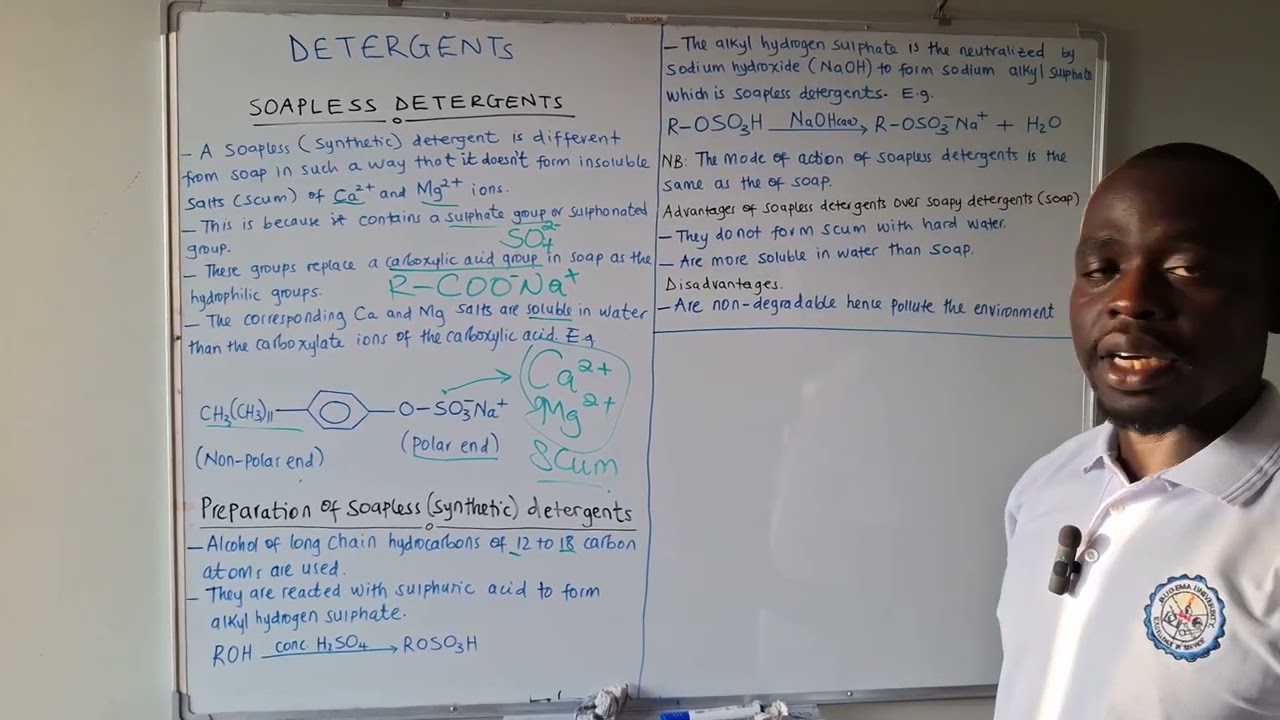 120X90CM
DETERGENTS
SOAPLESS DETERGENTS
- A soapless (synthetic) detergent is different
from soap in such a way that it doesn't form insoluble
salts (scum) of Ca²⁺ and Mg²⁺ ions.
- This is because it contains a sulphate group or sulphonated
group.
SO₄²⁻
- These groups replace a carboxylic acid group in soap as the
hydrophilic groups.
R-COO⁻Na⁺
- The corresponding Ca and Mg salts are soluble in water
than the carboxylate ions of the carboxylic acid. E.g
CH₃(CH₂)₁₁ O-SO₃⁻Na⁺
Ca²⁺
Mg²⁺
(Non-polar end) (polar end)
Scum
Preparation of soapless (synthetic) detergents
- Alcohol of long chain hydrocarbons of 12 to 18 carbon
atoms are used.
- They are reacted with sulphuric acid to form
alkyl hydrogen sulphate.
ROH conc. H₂SO₄ → ROSO₃H
- The alkyl hydrogen sulphate is the neutralized by
sodium hydroxide (NaOH) to form sodium alkyl sulphate
which is soapless detergents. E.g.
R-OSO₃H NaOH(aq) → R-OSO₃⁻Na⁺ + H₂O
NB: The mode of action of soapless detergents is the
same as the of soap.
Advantages of soapless detergents over soapy detergents (soap)
- They do not form scum with hard water.
- Are more soluble in water than soap.
Disadvantages.
- Are non-degradable hence pollute the environment
BUGEMA UNIVERSITY
EXCELLENCE IN SERVICE